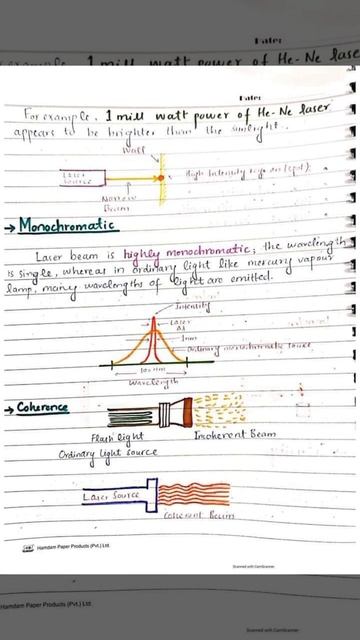 Date:
example, 1 mill watt power of He-Ne lase
Date:
For example, 1 mill watt power of He-Ne laser
appears to be brighter than the sunlight.
Wall
Laser
Source
High Intensity region (spot).
Narrow
Beam
→ Monochromatic
Laser beam is highly monochromatic; the wavelength
is single, whereas in ordinary light like mercury vapour
lamp, many wavelengths of light are emitted.
Intensity
Laser
Ordinary monochromatic
Wavelength
→ Coherence
Flash light
Incoherent Beam
Ordinary light source
Laser Source
Coherent Beam
Hamdam Paper Products (Pvt.) Ltd.
Scanned with CamScanner
Hamdam Paper Products (Pvt.) Ltd.
Scanned with CamScanner